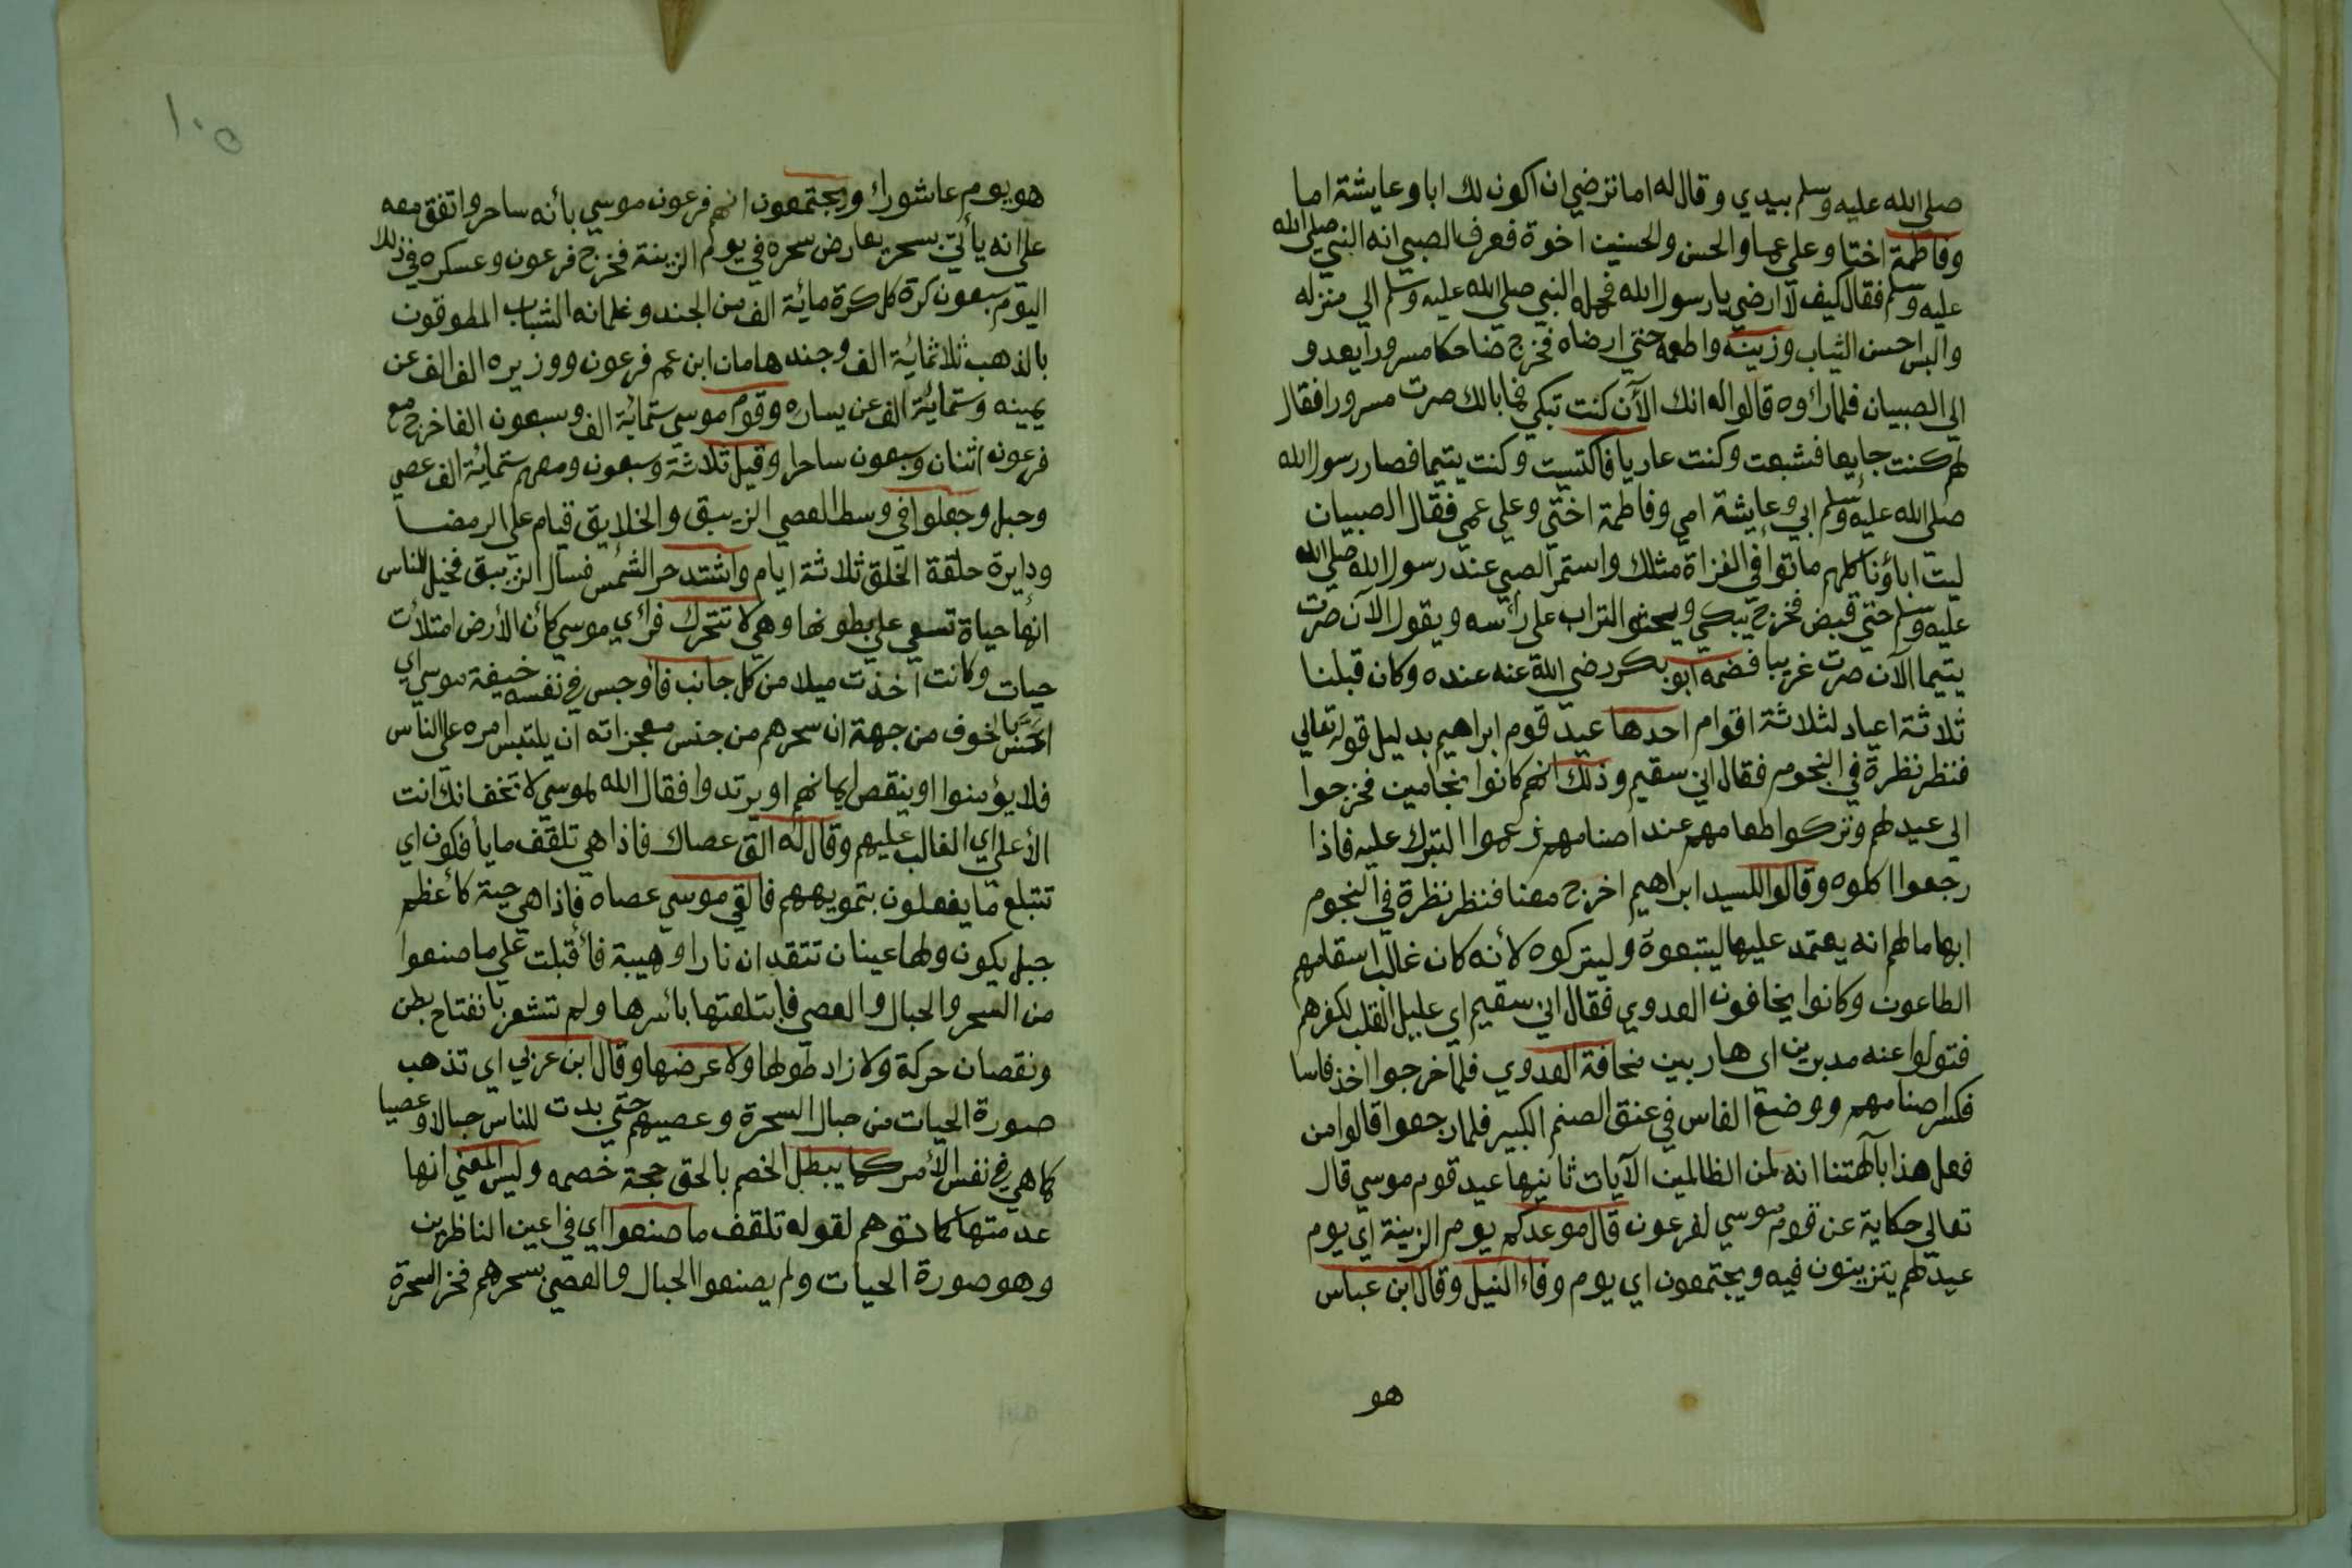 صلي الله عليه وسلم بيدي وقال له اما ترضي ان اكون لك ابا وعايشة اما
وفاطمة اختا وعلي عما والحسن والحسين اخوة فعرف الصبي انه النبي صلي الله
عليه وسلم فقال كيف لا ارضي يا رسول الله فحمله النبي صلي الله عليه وسلم الي منزله
والبس احسن الثياب وزينه واطعمه حتي ارضاه فخرج ضاحكا مسرورا يعدو
الي الصبيان فلما راوه قالوا له انك الآن كنت تبكي فما بالك صرت مسرورا فقال
لهم كنت جايعا فشبعت وكنت عاريا فاكتسيت وكنت يتيما فصار رسول الله
صلي الله عليه وسلم ابي وعايشة امي وفاطمة اختي وعلي عمي فقال الصبيان
ليت اباؤنا كلهم ماتوا في الغزاة مثلك واستمر الصبي عند رسول الله صلي الله
عليه وسلم حتي قبض فخرج يبكي ويحثوا التراب علي رأسه ويقول الآن صرت
يتيما الآن صرت غريبا فضمه ابو بكر رضي الله عنه عنده وكان قبلنا
ثلاثة اعياد لثلاثة اقوام احدها عيد قوم ابراهيم بدليل قوله تعالي
فنظر نظرة في النجوم فقال اني سقيم وذلك انهم كانوا نجامين فخرجوا
الي عيد لهم وتركوا طعامهم عند اصنامهم زعموا التبرك عليه فاذا
رجعوا اكلوه وقالوا للسيد ابراهيم اخرج معنا فنظر نظرة في النجوم
ابهاما لهم انه يعتمد عليها ليتبعوه وليتركوه لأنه كان غالب اسقامهم
الطاعون وكانوا يخافون العدوي فقال اني سقيم اي عليل القلب لكفرهم
فتولوا عنه مدبرين اي هاربين مخافة العدوي فلما خرجوا اخذ فاسا
فكسر اصنامهم ووضع الفاس في عنق الصنم الكبير فلما رجعوا قالوا من
فعل هذا بآلهتنا انه لمن الظالمين الآيات ثانيها عيد قوم موسي قال
تعالي حكاية عن قوم موسي لفرعون قال موعدكم يوم الزينة اي يوم
عيد لهم يتزينون فيه ويجتمعون اي يوم وفاء النيل وقال ابن عباس
هو
١٠٥
هو يوم عاشوراء ويجتمعون انهم فرعون موسي بأنه ساحر واتفق معه
علي انه يأتي بسحر يعارض سحره في يوم الزينة فخرج فرعون وعسكره في ذلك
اليوم سبعون كرة كل كرة مائة الف من الجند وغلمانه الشباب المطوقون
بالذهب ثلاثمائة الف وجند هامان ابن عم فرعون ووزيره الف الف عن
يمينه وستمائة الف عن يساره وقوم موسي ستمائة الف وسبعون الفا خرج مع
فرعون اثنان وسبعون ساحرا وقيل ثلاثة وسبعون ومعهم ستمائة الف عصي
وحبل وجعلوا في وسط العصي الزيبق والخلايق قيام علي الرمضا
ودايرة حلقة الخلق ثلاثة ايام واشتد حر الشمس فسال الزيبق فخيل للناس
انها حياة تسعي علي بطونها وهي لا تتحرك فرأي موسي كأن الأرض امتلأت
حيات وكانت اخذت ميلا من كل جانب فأوجس في نفسه خيفة موسي اي
احس بالخوف من جهة ان سحرهم من جنس معجزاته ان يلتبس امره علي الناس
فلا يؤمنوا او ينقص ايمانهم او يرتدوا فقال الله لموسي لا تخف انك انت
الأعلي اي الغالب عليهم وقال له الق عصاك فاذا هي تلقف ما يأفكون اي
تبتلع ما يفعلون بتمويههم فالقي موسي عصاه فاذا هي حية كأعظم
جبل يكون ولها عينان تتقدان نارا وهيبة فأقبلت علي ما صنعوا
من السحر والحبال والعصي فابتلعتها بأسرها ولم تشعر بانفتاح بطن
ونقصان حركة ولا زاد طولها ولا عرضها وقال ابن عربي اي تذهب
صورة الحيات من حبال السحرة وعصيهم حتي بدت للناس حبالا وعصيا
كما هي في نفس الأمر كما يبطل الخصم بالحق حجة خصمه وليس المعني انها
عدمتها كما توهم لقوله تلقف ما صنعوا اي في اعين الناظرين
وهو صورة الحيات ولم يصنعوا الحبال والعصي بسحرهم فخر السحرة